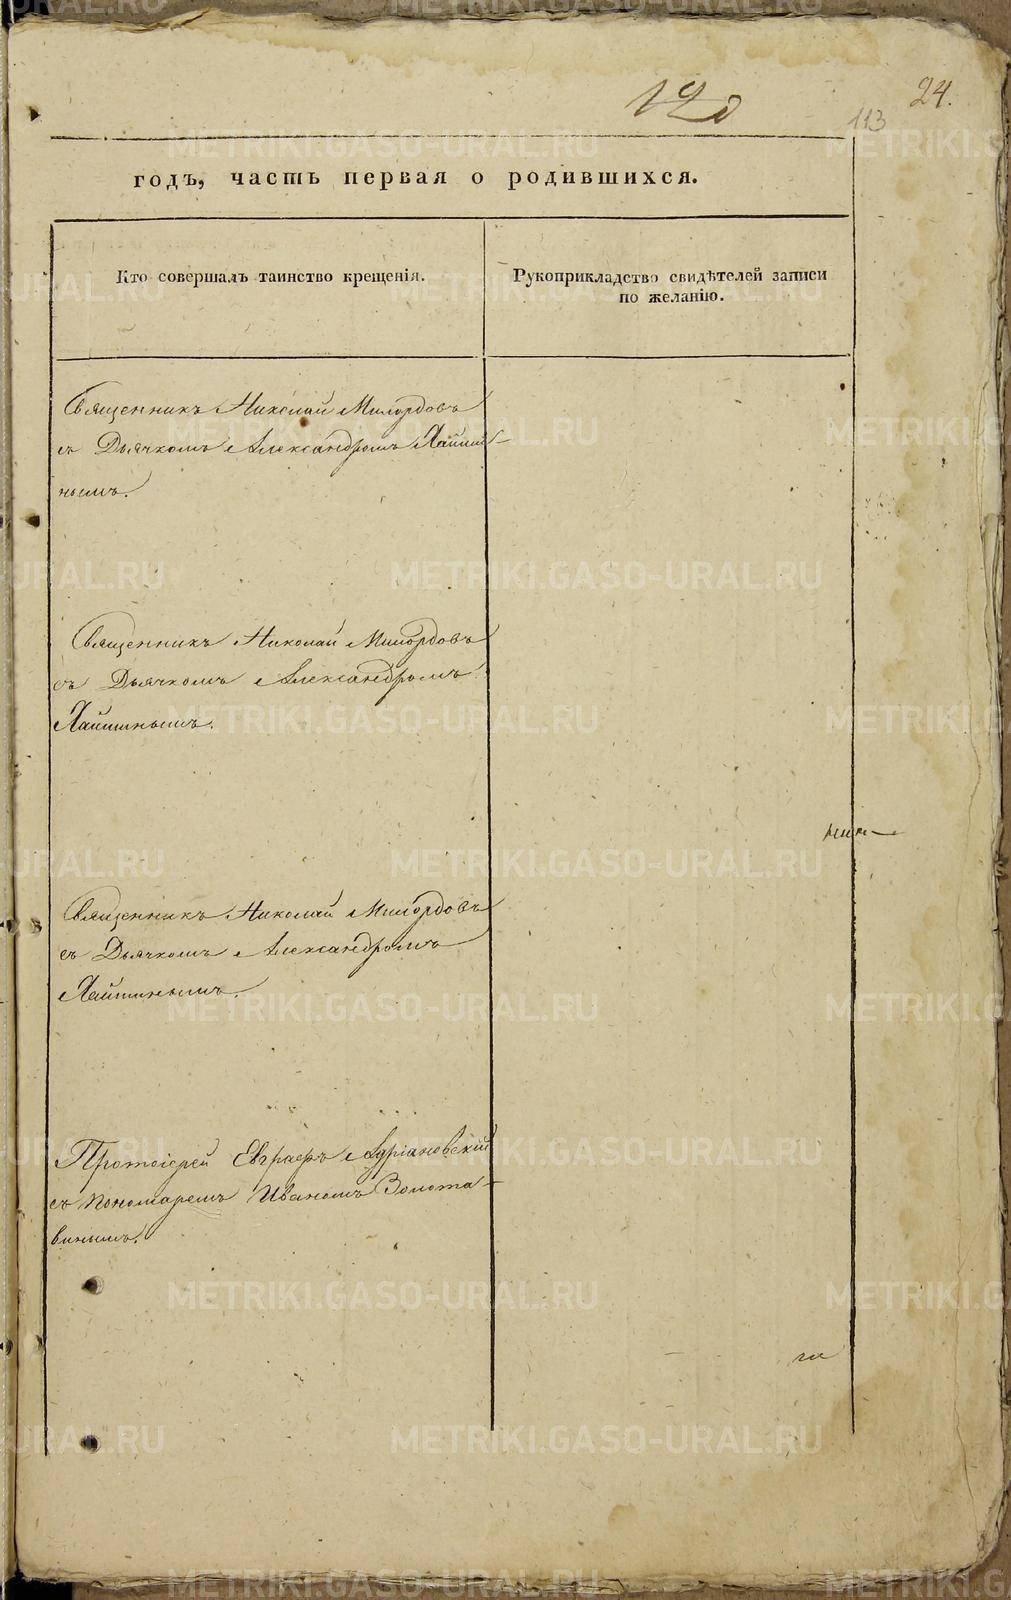 24.
113
годъ, часть первая о родившихся.
Кто совершалъ таинство крещенія.
Рукоприкладство свидѣтелей записи
по желанію.
Священникъ Николай Милордовъ
съ Дьячкомъ Александромъ Хайми-
нымъ.
Священникъ Николай Милордовъ
съ Дьячкомъ Александромъ
Священникъ Николай Милордовъ
съ Дьячкомъ Александромъ
Протоіерей Евграфъ Адріановскій
съ пономаремъ Иваномъ Золота-
винымъ.
METRIKI.GASO-URAL.RU